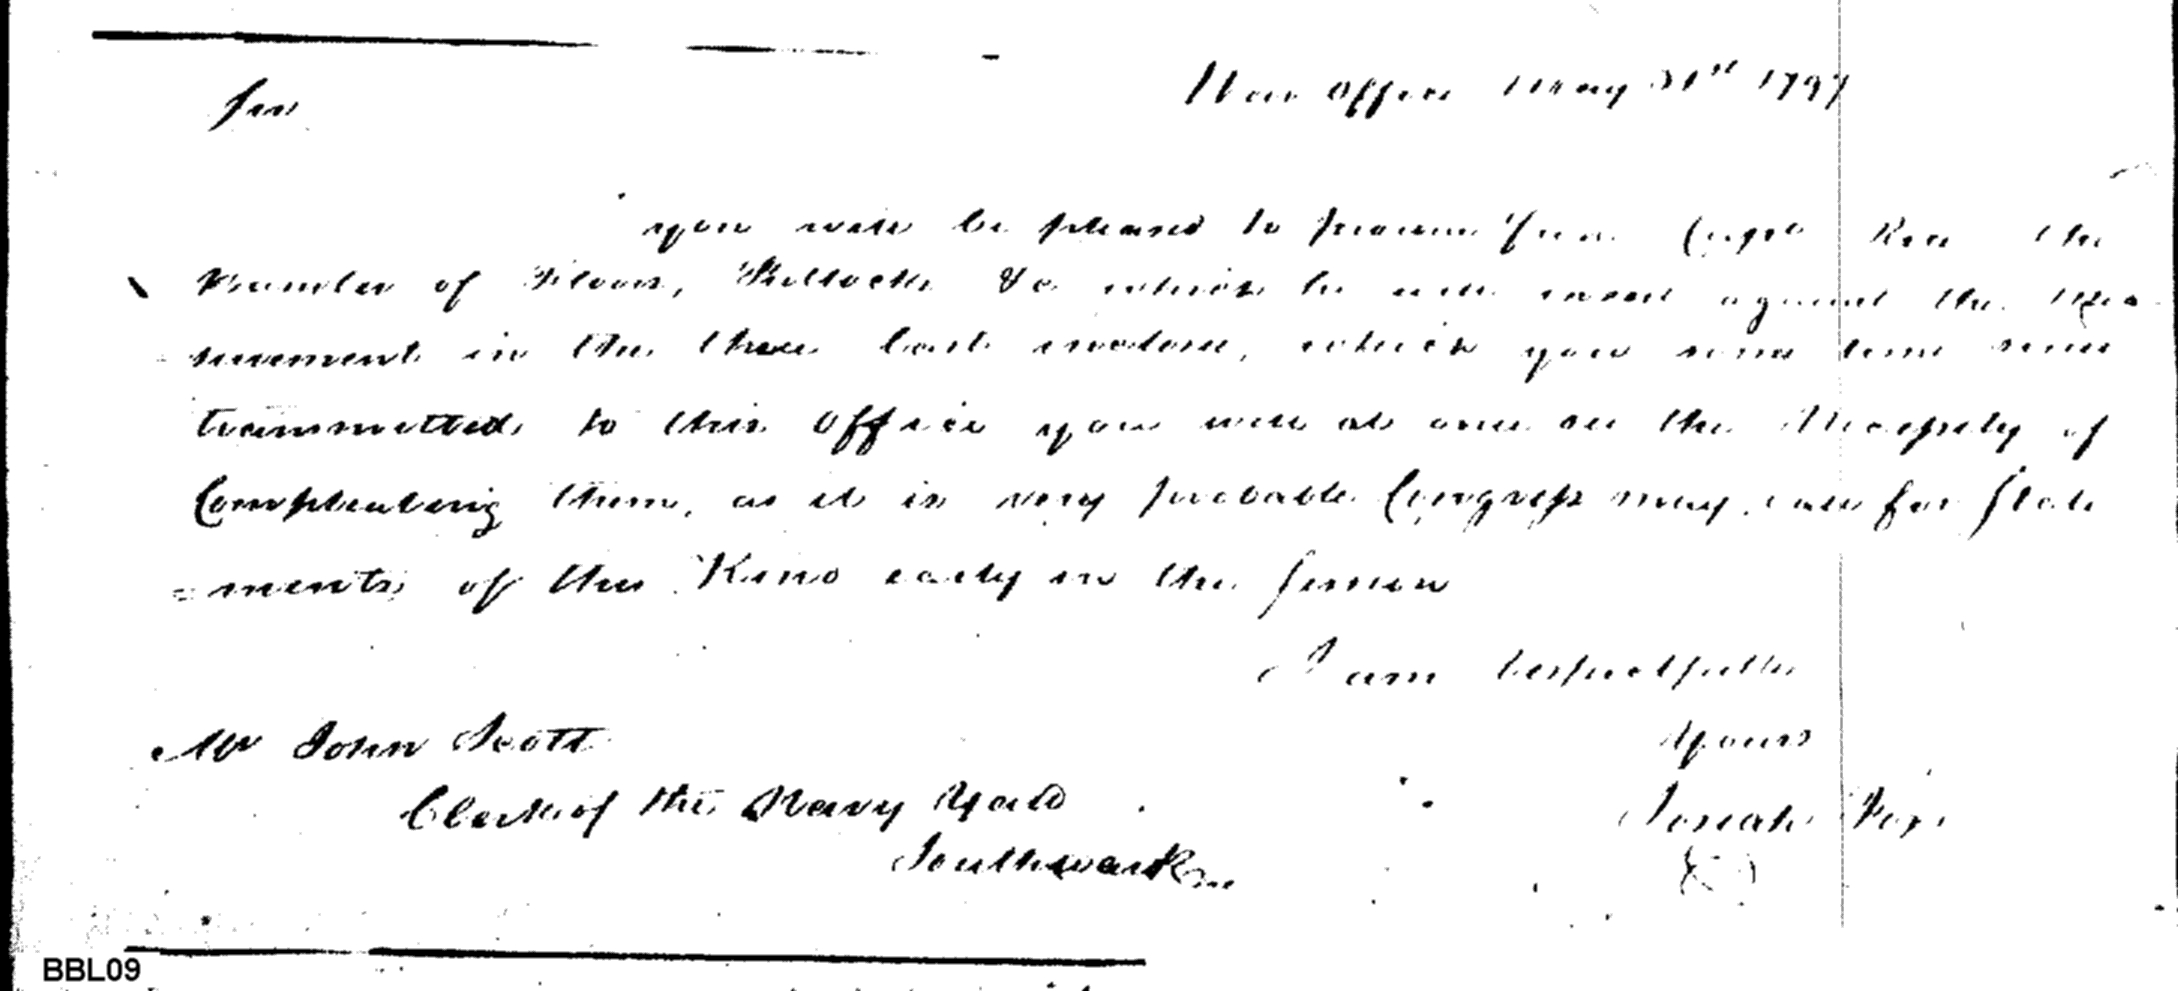 War Office May 31st 1797
Sir
you will be pleased to procure from Capt Rice the
Number of Floors, Futtocks &c which he will insert against the Mea
surement in the three last invoices, which you some time since
transmitted to this Office you will at once see the Necessity of
Compleating them, as it is very probable Congress may call for State
=ments of this Kind early in the Session
I am respectfully
Yours
Mr John Scott
Josiah Fox
Clerk of the Navy Yard
Southwark
BBL09